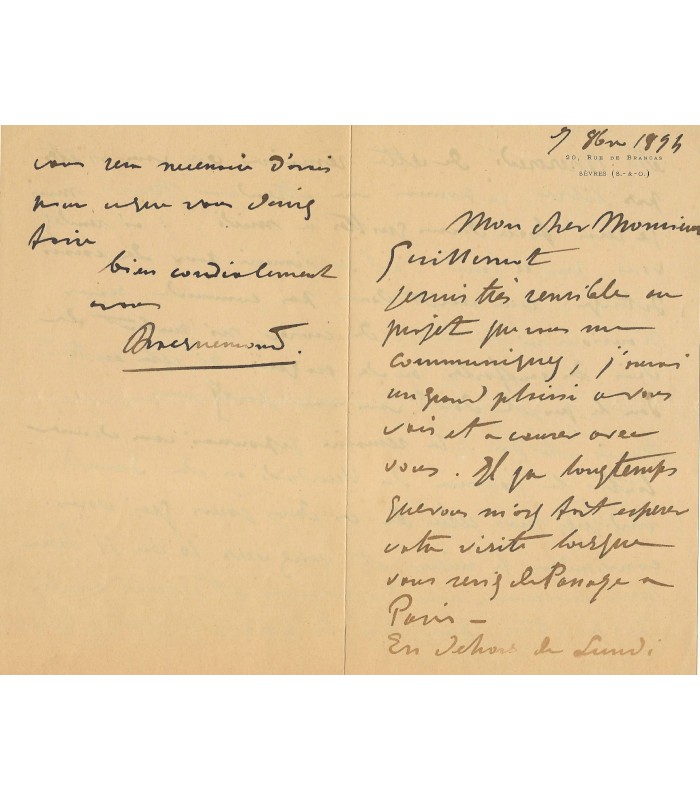 7 8bre 1894
20, RUE DE BRANCAS
SÈVRES (S.-&-O.)
Mon cher Monsieur
Guillemot
je suis très sensible au
projet que vous me
communiquez, j'aurai
un grand plaisir a vous
voir et a causer avec
vous. Il y a longtemps
que vous m'avez fait esperer
votre visite lorsque
vous seriez de Passage a
Paris —
En dehors de Lundi
vous sera necessaire d'avis
pour ce que vous
faire
bien cordialement
a vous
Bracquemond.